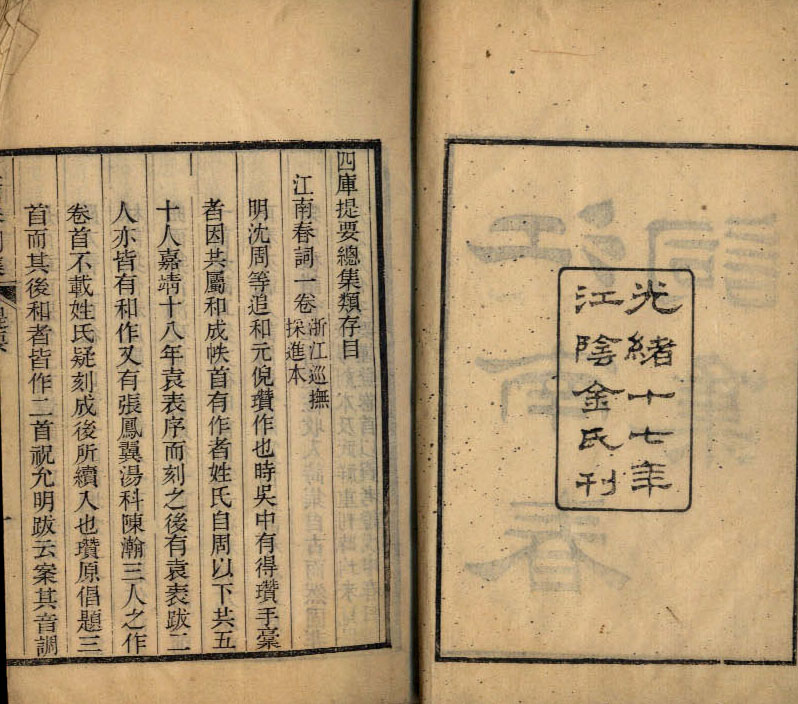 光緒十七年
江陰金氏刊
四庫提要總集類存目
江南春詞一卷
浙江巡撫
採進本
明沈周等追和元倪瓚作也時吳中有得瓚手稾
者因共屬和成帙首有作者姓氏自周以下共五
十人嘉靖十八年袁表序而刻之後有袁袠跋二
人亦皆有和作又有張鳳翼湯科陳瀚三人之作
卷首不載姓氏疑刻成後所續入也瓚原倡題三
首而其後和者皆作二首祝允明跋云案其音調